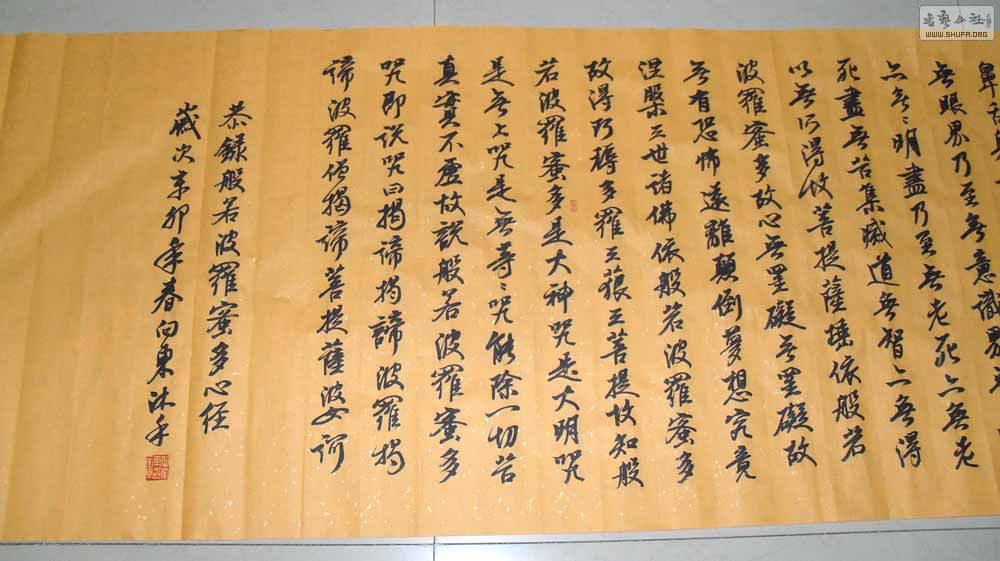 鼻舌
無眼界乃至無意識界無
亦無〻明盡乃至無老死亦無老
死盡無苦集滅道無智亦無得
以無所得故菩提薩埵依般若
波羅蜜多故心無罣礙無罣礙故
無有恐怖遠離顛倒夢想究竟
涅槃三世諸佛依般若波羅蜜多
故得阿耨多羅三藐三菩提故知般
若波羅蜜多是大神咒是大明咒
是無上咒是無等〻咒能除一切苦
真實不虛故說般若波羅蜜多
咒即說咒曰揭諦揭諦波羅揭
諦波羅僧揭諦菩提薩婆訶
恭錄般若波羅蜜多心經
歲次辛卯年春向東沐手
書藝公社
WWW.SHUFA.ORG